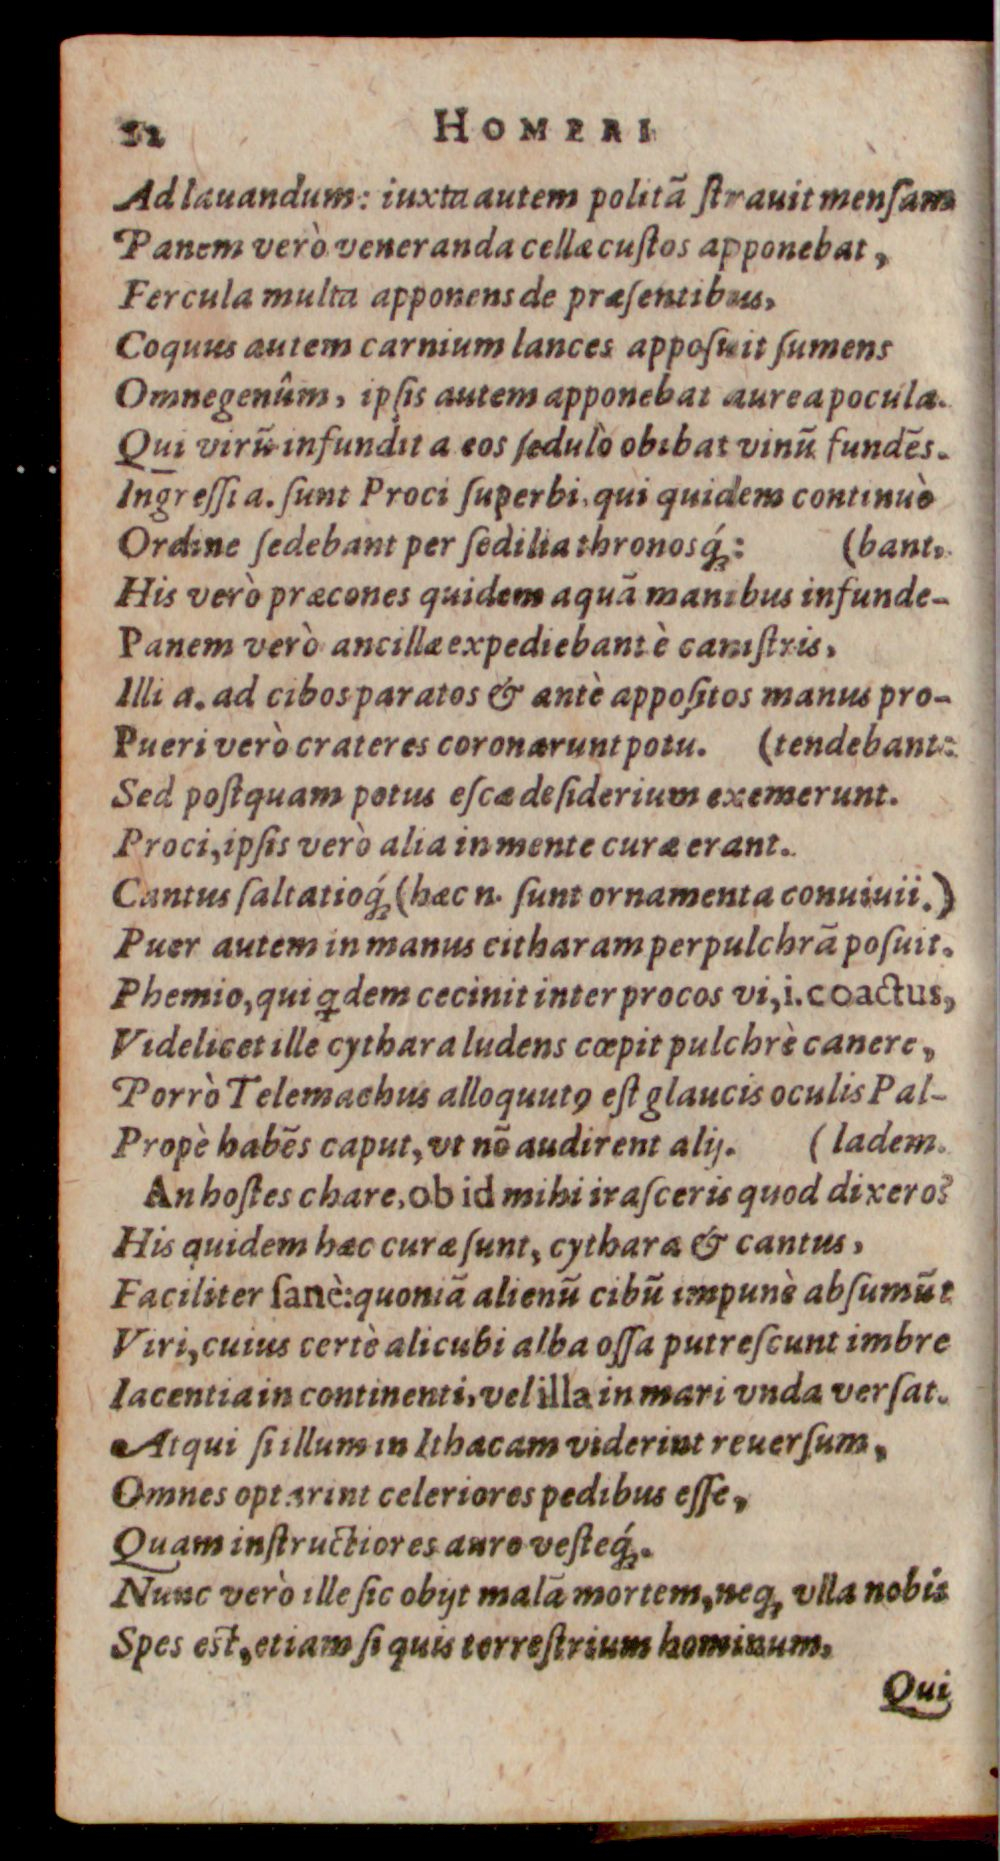 12 HOMERI
Ad lauandum: iuxta autem politã ſtrauit menſam
Panem verò veneranda cellæ cuſtos apponebat,
Fercula multa apponens de præſentibus,
Coquus autem carnium lances appoſuit ſumens
Omnegenûm, ipſis autem apponebat aurea pocula.
Qui virũ infundit a eos ſedulò obibat vinũ fundẽs.
Ingreſſi a. ſunt Proci ſuperbi, qui quidem continuò
Ordine ſedebant per ſedilia thronosq́;: (bant,
His verò præcones quidem aquã manibus infunde-
Panem verò ancillæ expediebant è caniſtris,
Illi a. ad cibos paratos & antè appoſitos manus pro-
Pueri verò crateres coronarunt potu. (tendebant:
Sed poſtquam potus eſcæ deſiderium exemerunt.
Proci, ipſis verò alia in mente curæ erant.
Cantus ſaltatioq́; (hæc n. ſunt ornamenta conuiuii.)
Puer autem in manus citharam perpulchrã poſuit.
Phemio, qui ꝗdem cecinit inter procos vi, i. coactus,
Videlicet ille cythara ludens cœpit pulchrè canere,
Porrò Telemachus alloquutꝰ eſt glaucis oculis Pal-
Propè habẽs caput, vt nõ audirent alij. (ladem.
An hoſtes chare, ob id mihi iraſceris quod dixero?
His quidem hæc curæ ſunt, cythara & cantus,
Faciliter ſanè: quoniã alienũ cibũ impunè abſumũt
Viri, cuius certè alicubi alba oſſa putreſcunt imbre
Iacentia in continenti, vel illa in mari vnda verſat.
Atqui ſi illum in Ithacam viderint reuerſum,
Omnes optarint celeriores pedibus eſſe,
Quam inſtructiores auro veſteq́;.
Nunc verò ille ſic obijt malã mortem, neq; vlla nobis
Spes eſt, etiam ſi quis terreſtrium hominum,
Qui